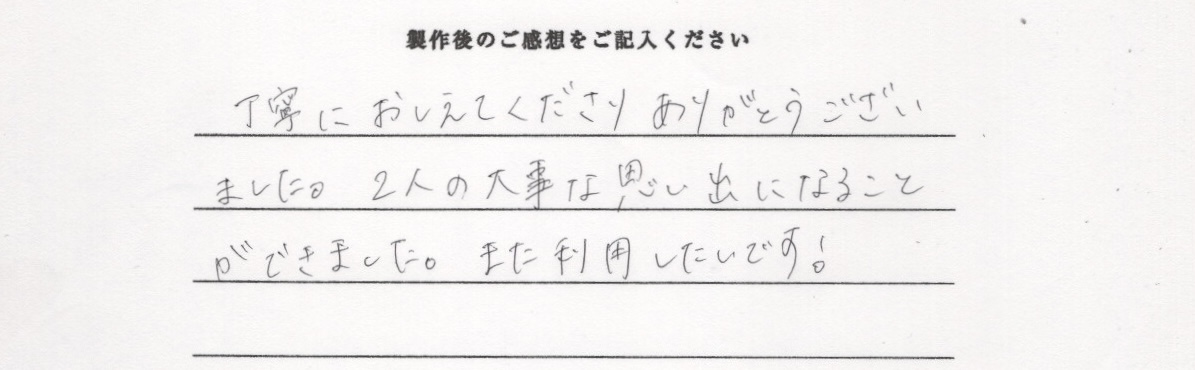 製作後のご感想をご記入ください
丁寧に おしえてくださり ありがとうござい
ました。 2人の大事な思い出になること
ができました。 また利用したいです!